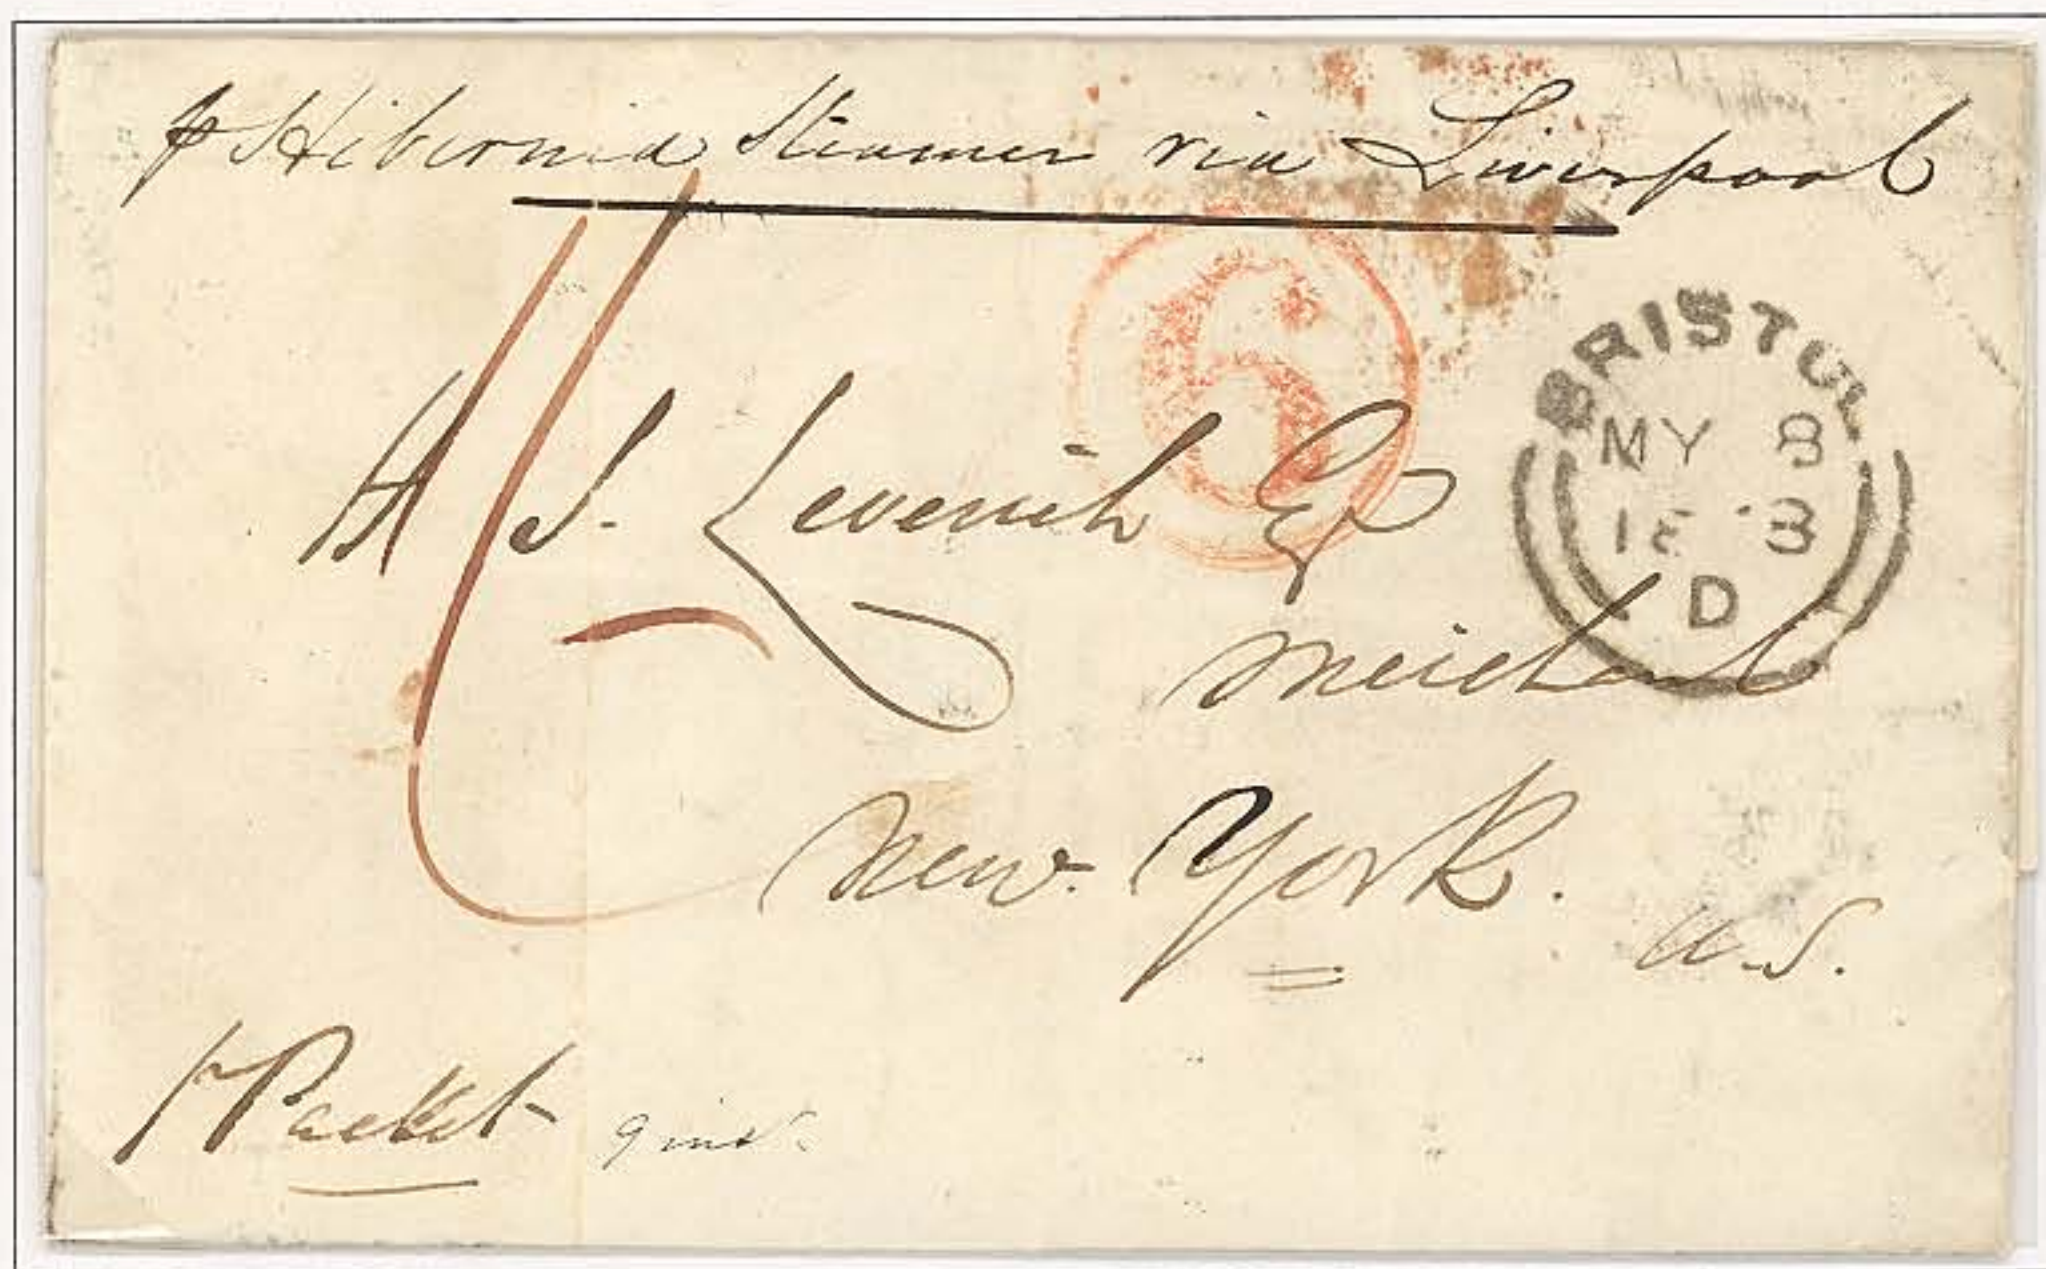 p Hibernia Steamer via Liverpool
1/-
6
BRISTOL
MY 8
D
H J. Leverich Esq
Merchant
New York.
U.S.
p Packet 9 inst